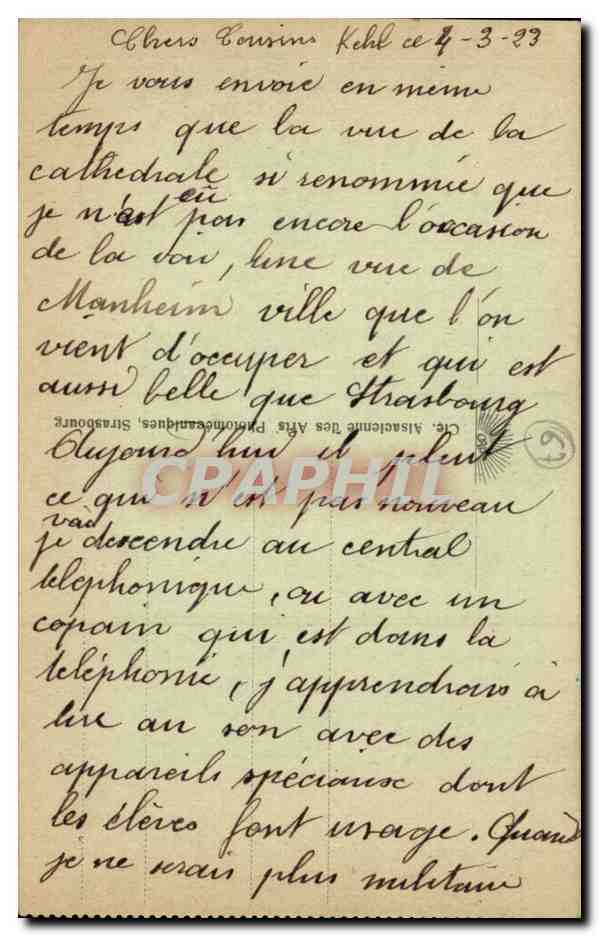 Chers Cousins Kehl ce 4-3-23
Je vous envoie en même
temps que la vue de la
cathedrale si renommée que
je n'ait eu pas encore l'occasion
de la voir, une vue de
Manheim ville que l'on
vient d'occuper et qui est
aussi belle que Strasbourg
Cie. Alsacienne des Arts Photomécaniques, Strasbourg
67
Aujourd'hui il pleut
CPARHIL
ce qui n'est pas nouveau
je vais descendre au central
telephonique, ou avec un
copain qui est dans la
téléphonie, j'apprendrais à
lire au son avec des
appareils spéciaux dont
les élèves font usage. Quand
je ne serais plus militaire